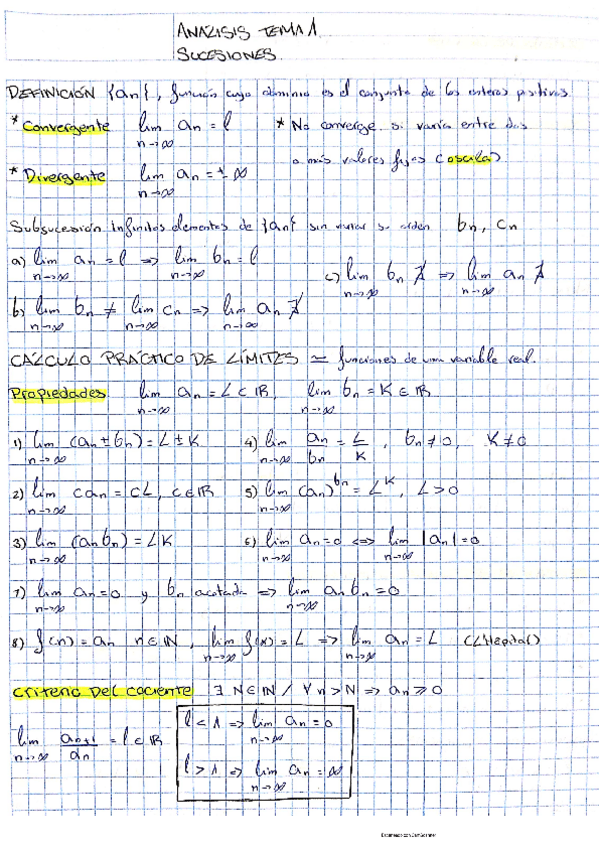 ANALISIS TEMA 1
SUCESIONES
DEFINICIÓN {an}, función cuyo dominio es el conjunto de los enteros positivos.
* Convergente lim an = l n→∞ * No converge si varía entre dos
o más valores fijos (oscila).
* Divergente lim an = ± ∞ n→∞
Subsucesión infinitos elementos de {an} sin variar su orden bn, cn
a) lim an = l => lim bn = l n→∞ n→∞
c) lim bn ∄ => lim an ∄ n→∞ n→∞
b) lim bn ≠ lim cn => lim an ∄ n→∞ n→∞ n→∞
CÁLCULO PRÁCTICO DE LÍMITES ≃ funciones de una variable real.
Propiedades lim an = L ∈ IR, lim bn = K ∈ IR n→∞ n→∞
1) lim (an ± bn) = L ± K n→∞ 4) lim an/bn = L/K, bn ≠ 0, K ≠ 0 n→∞
2) lim can = cL, c ∈ IR n→∞ 5) lim (an)^bn = L^K, L > 0 n→∞
3) lim (an bn) = LK n→∞ 6) lim an = 0 <=> lim |an| = 0 n→∞ n→∞
7) lim an = 0 y bn acotada => lim an bn = 0 n→∞ n→∞
8) f(n) = an n ∈ IN, lim f(x) = L => lim an = L (L'Hopital) n→∞ n→∞
Criterio Del cociente ∃ N ∈ IN / ∀ n > N => an ≥ 0
lim an+1/an = l ∈ IR n→∞
l < 1 => lim an = 0 n→∞
l > 1 => lim an = ∞ n→∞
Escaneado con CamScanner